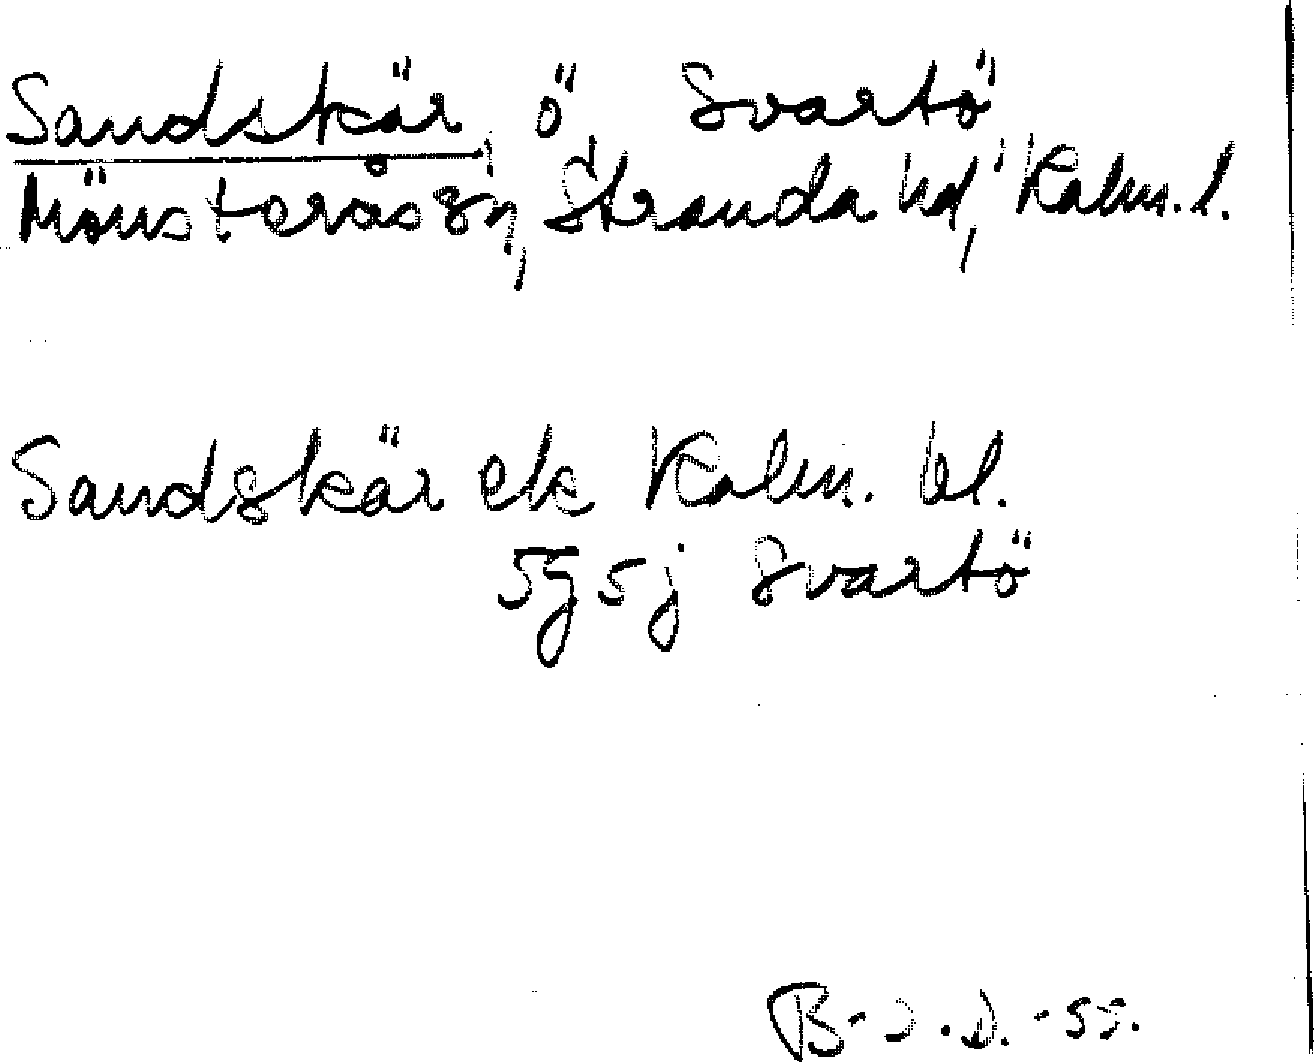 Sandskär, ö, Svartö,
Mönsterås sn, Stranda hd, Kalm. l.
Sandskär ek Kalm. bl.
5g5j Svartö
B-J.D.-55.